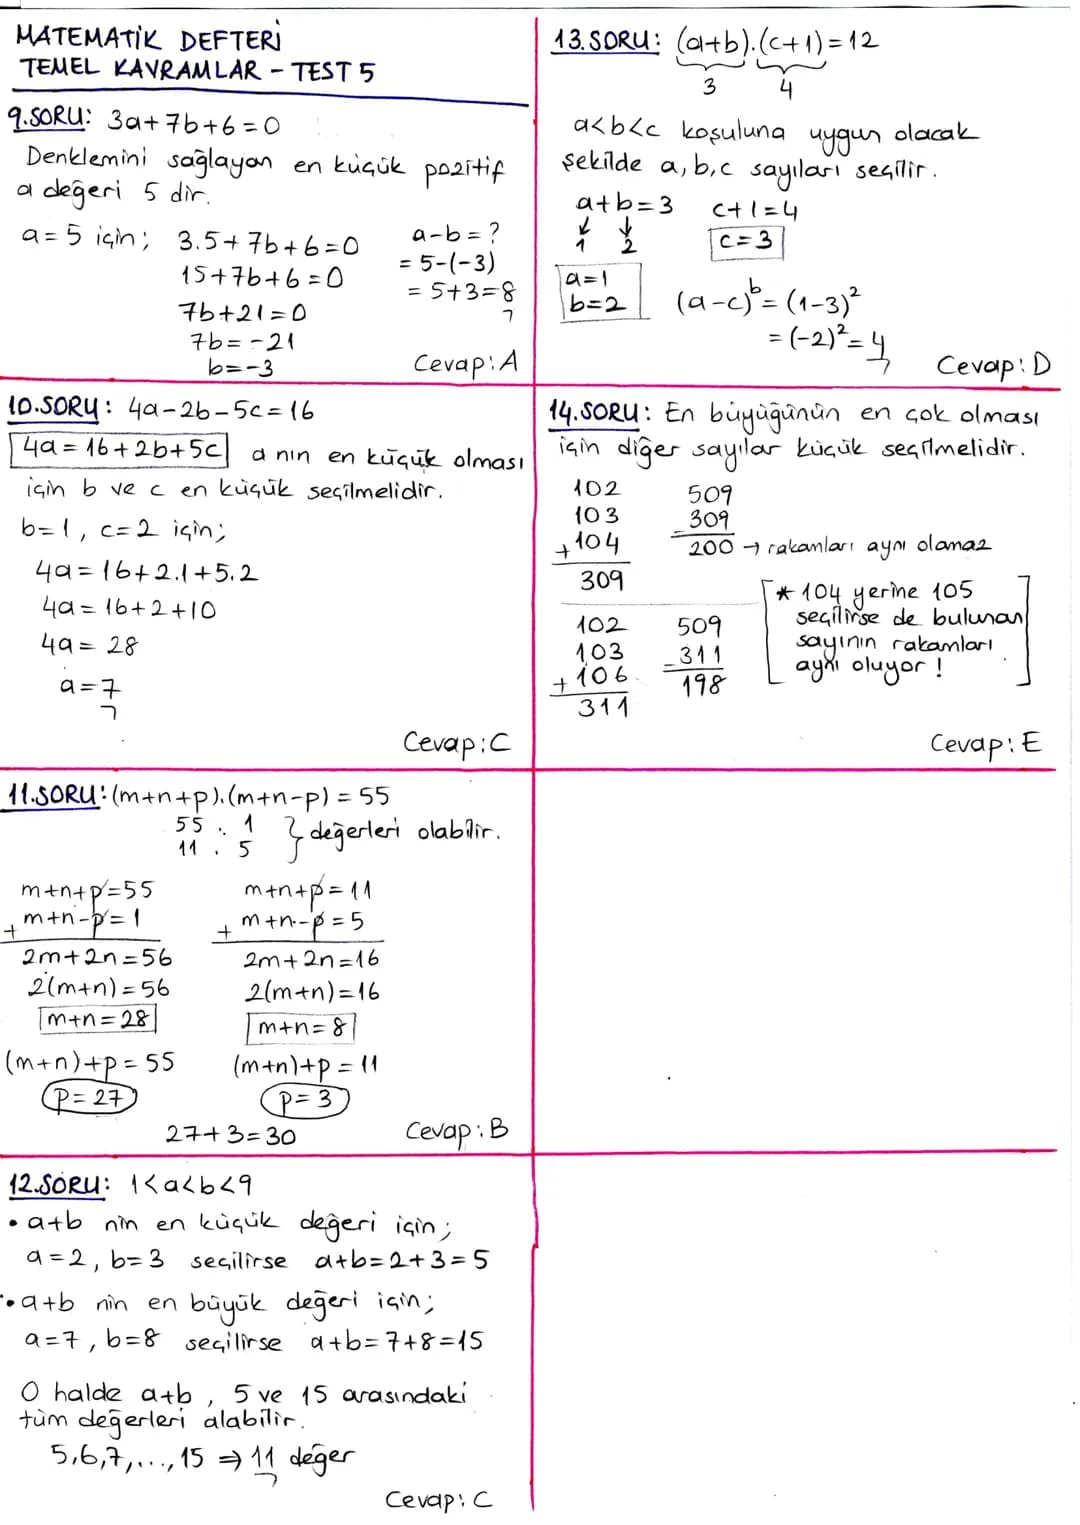 MATEMATİK DEFTERİ
TEMEL KAVRAMLAR - TEST 5
9.SORU: 3a+7b+6=0
Denklemini sağlayan en küçük pozitif
a değeri 5 dir.
a=5 için; 3.5+7b+6=0
15+7b+6=0
7b+21=0
7b=-21
b=-3
a-b=?
=5-(-3)
=5+3=8
Cevap: A
10.SORU: 4a-2b-5c=16
4a=16+2b+5c a nın en küçük olması
için b ve c en küçük seçilmelidir.
b=1, c=2 için;
4a=16+2.1+5.2
4a=16+2+10
4a=28
a=7
Cevap: C
11.SORU: (m+n+p).(m+n-p)=55
55 . 1
11 . 5 } değerleri olabilir.
m+n+p=55
+ m+n-p=1
2m+2n=56
2(m+n)=56
m+n=28
(m+n)+p=55
p=27
m+n+p=11
+ m+n-p=5
2m+2n=16
2(m+n)=16
m+n=8
(m+n)+p=11
p=3
27+3=30
Cevap: B
12.SORU: 1<a<b<9
• a+b nin en küçük değeri için;
a=2, b=3 seçilirse a+b=2+3=5
• a+b nin en büyük değeri için;
a=7, b=8 seçilirse a+b=7+8=15
O halde a+b, 5 ve 15 arasındaki
tüm değerleri alabilir.
5,6,7,...,15 ⇒ 11 değer
Cevap: C
13.SORU: (a+b).(c+1)=12
3 4
a<b<c koşuluna uygun olacak
şekilde a,b,c sayıları seçilir.
a+b=3 c+1=4
↓ ↓
1 2 c=3
a=1
b=2
(a-c)ᵇ=(1-3)²
=(-2)²=4
Cevap: D
14.SORU: En büyüğünün en çok olması
için diğer sayılar küçük seçilmelidir.
102
103
+ 104
309
509
- 309
200 → rakamları aynı olamaz
102
103
+ 106
311
509
- 311
198
* 104 yerine 105
seçilirse de bulunan
sayının rakamları
aynı oluyor!
Cevap: E